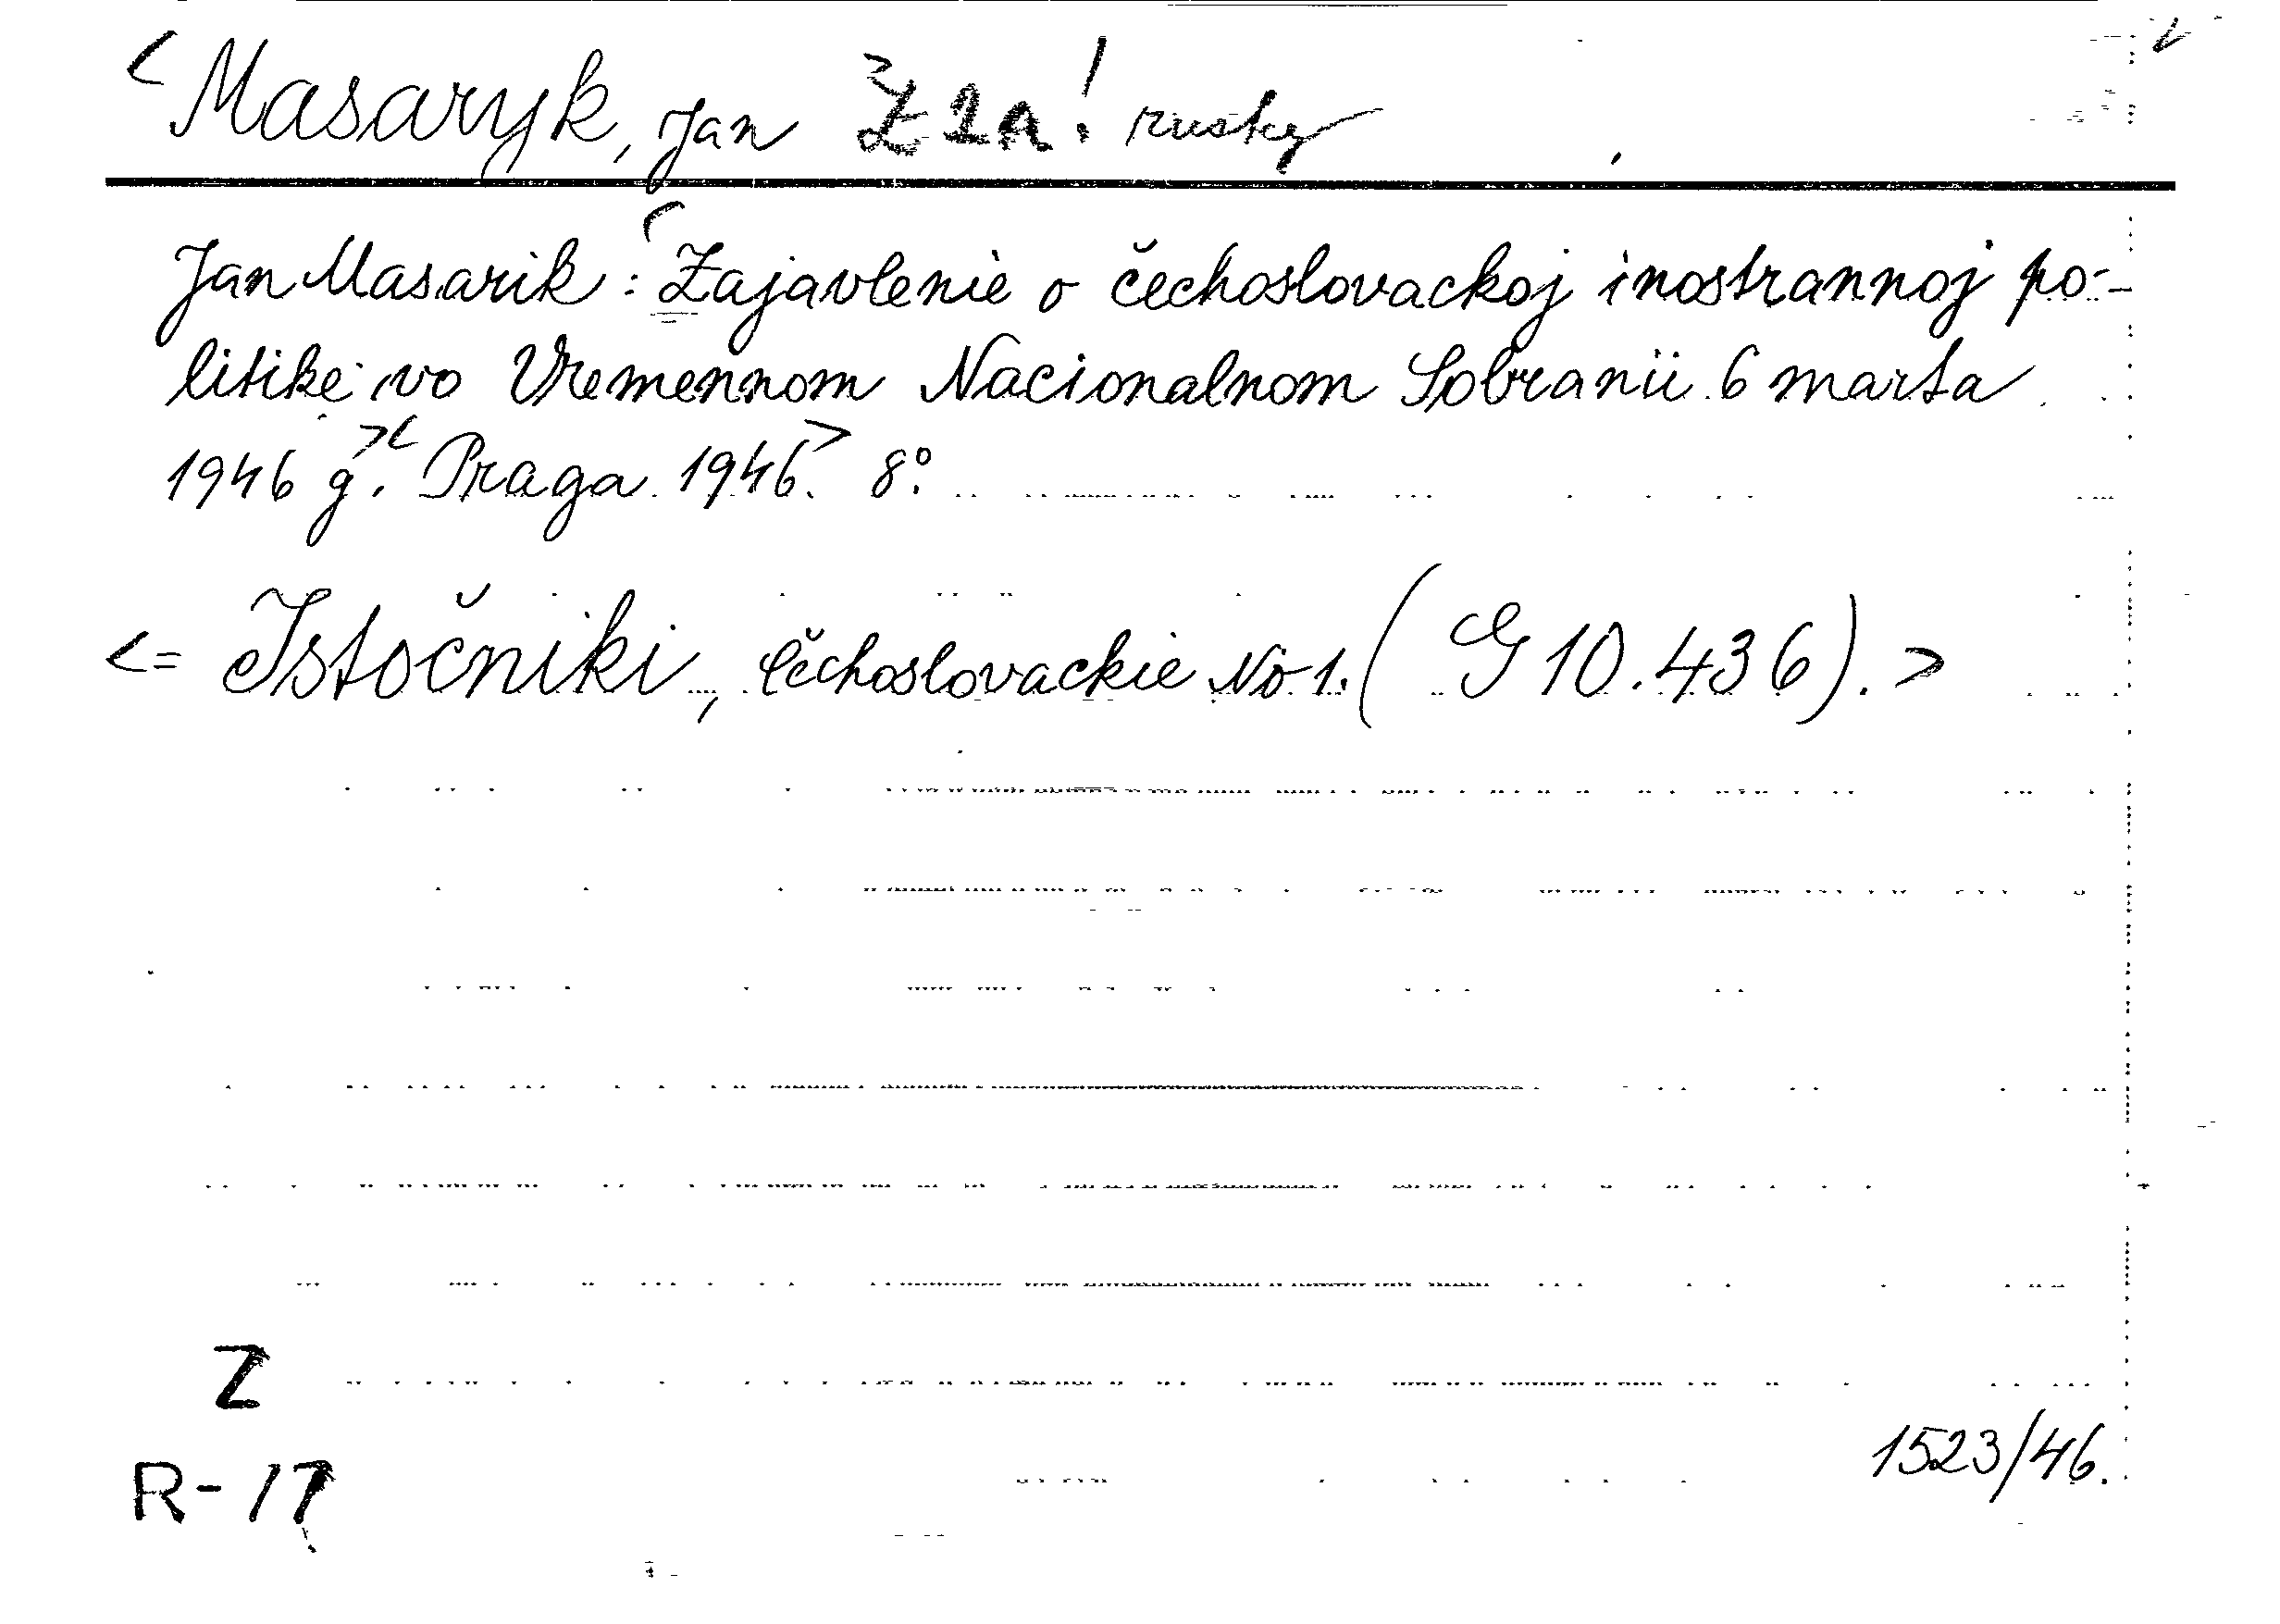 < Masaryk, Jan Z 2a! rusky
Jan Masarik: <Zajavlenie o čechoslovackoj inostrannoj po-
litike vo Vremennom Nacionalnom Sobranii 6 marta
1946 g.>< Praga 1946.> 8°.
<= Istočniki, Čechoslovackie No 1. (G 10.436). >
Z
R-17
1523/46.